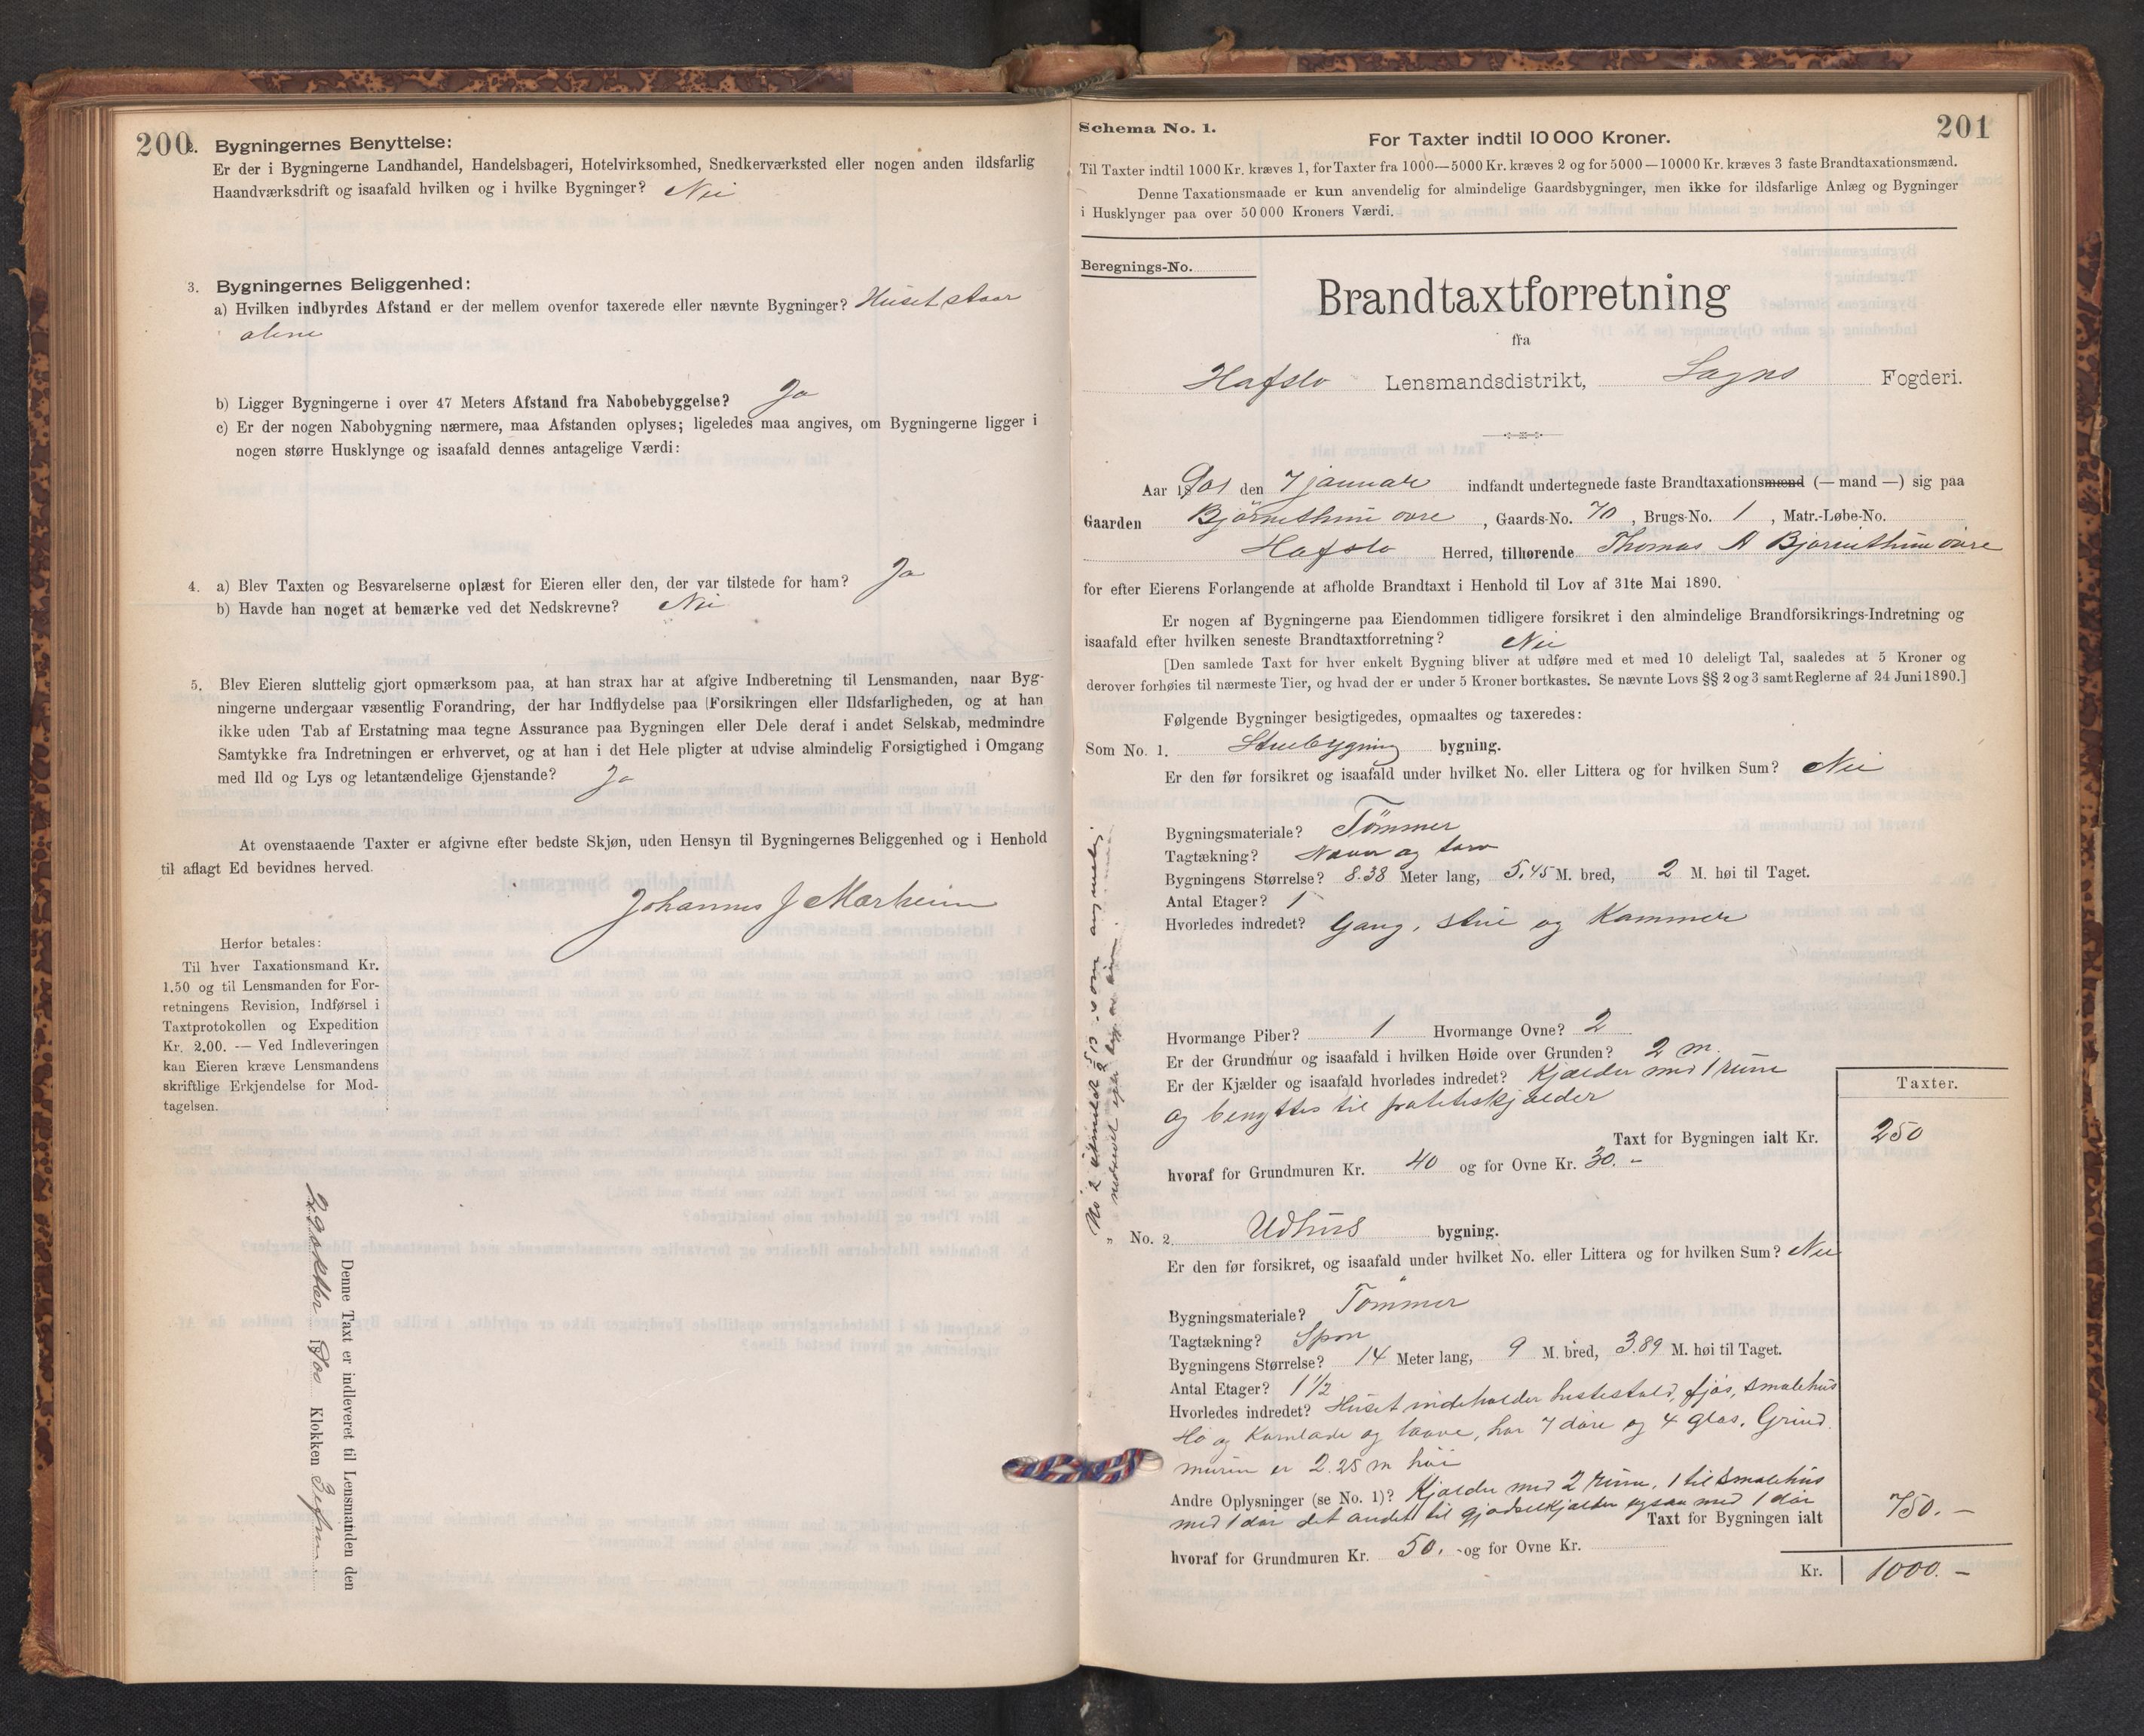 200
2. Bygningernes Benyttelse:
Er der i Bygningerne Landhandel, Handelsbageri, Hotelvirksomhed, Snedkerværksted eller nogen anden ildsfarlig
Haandværksdrift og isaafald hvilken og i hvilke Bygninger? Nei
3. Bygningernes Beliggenhed:
a) Hvilken indbyrdes Afstand er der mellem ovenfor taxerede eller nævnte Bygninger? Huset staar
alene
b) Ligger Bygningerne i over 47 Meters Afstand fra Nabobebyggelse? Ja
c) Er der nogen Nabobygning nærmere, maa Afstanden oplyses; ligeledes maa angives, om Bygningerne ligger i
nogen større Husklynge og isaafald dennes antagelige Værdi:
4. a) Blev Taxten og Besvarelserne oplæst for Eieren eller den, der var tilstede for ham? Ja
b) Havde han noget at bemærke ved det Nedskrevne? Nei
5. Blev Eieren sluttelig gjort opmærksom paa, at han strax har at afgive Indberetning til Lensmanden, naar Byg-
ningerne undergaar væsentlig Forandring, der har Indflydelse paa (Forsikringen eller Ildsfarligheden, og at han
ikke uden Tab af Erstatning maa tegne Assurance paa Bygningen eller Dele deraf i andet Selskab, medmindre
Samtykke fra Indretningen er erhvervet, og at han i det Hele pligter at udvise almindelig Forsigtighed i Omgang
med Ild og Lys og letantændelige Gjenstande? Ja
At ovenstaaende Taxter er afgivne efter bedste Skjøn, uden Hensyn til Bygningernes Beliggenhed og i Henhold
til aflagt Ed bevidnes herved.
Johannes J Marheim
Herfor betales:
Til hver Taxationsmand Kr.
1.50 og til Lensmanden for For-
retningens Revision, Indførsel i
Taxtprotokollen og Expedition
Kr. 2.00. — Ved Indleveringen
kan Eieren kræve Lensmandens
skriftlige Erkjendelse for Mod-
tagelsen.
Denne Taxt er indleveret til Lensmanden den
29 oktbr 1900 Klokken 3 efm.
201
Schema No. 1.
For Taxter indtil 10 000 Kroner.
Til Taxter indtil 1000 Kr. kræves 1, for Taxter fra 1000—5000 Kr. kræves 2 og for 5000—10000 Kr. kræves 3 faste Brandtaxationsmænd.
Denne Taxationsmaade er kun anvendelig for almindelige Gaardsbygninger, men ikke for ildsfarlige Anlæg og Bygninger
i Husklynger paa over 50 000 Kroners Værdi.
Beregnings-No.
Brandtaxtforretning
fra
Hafslo Lensmandsdistrikt, Sogns Fogderi.
Aar 1901 den 7 januar indfandt undertegnede faste Brandtaxationsmænd (—mand—) sig paa
Gaarden Bjørnethun øvre, Gaards-No. 70, Brugs-No. 1, Matr.-Løbe-No.
Hafslo Herred, tilhørende Thomas A Bjørnethun øvre
for efter Eierens Forlangende at afholde Brandtaxt i Henhold til Lov af 31te Mai 1890.
Er nogen af Bygningerne paa Eiendommen tidligere forsikret i den almindelige Brandforsikrings-Indretning og
isaafald efter hvilken seneste Brandtaxtforretning? Nei
[Den samlede Taxt for hver enkelt Bygning bliver at udføre med et med 10 deleligt Tal, saaledes at 5 Kroner og
derover forhøies til nærmeste Tier, og hvad der er under 5 Kroner bortkastes. Se nævnte Lovs §§ 2 og 3 samt Reglerne af 24 Juni 1890.]
Følgende Bygninger besigtigedes, opmaaltes og taxeredes:
Som No. 1. Stuebygning bygning.
Er den før forsikret og isaafald under hvilket No. eller Littera og for hvilken Sum? Nei
Bygningsmateriale? Tømmer
Tagtækning? Næver og torv
Bygningens Størrelse? 8.38 Meter lang, 5,45 M. bred, 2 M. høi til Taget.
Antal Etager? 1
Hvorledes indredet? Gang, stue og Kammer
Hvormange Piber? 1 Hvormange Ovne? 2
Er der Grundmur og isaafald i hvilken Høide over Grunden? 2 m.
Er der Kjælder og isaafald hvorledes indredet? Kjælder med 1 rum
og benyttes til potetiskjælder
Taxter.
Taxt for Bygningen ialt Kr. 250
hvoraf for Grundmuren Kr. 40 og for Ovne Kr. 30.-
„ No. 2. Udhus bygning.
Er den før forsikret, og isaafald under hvilket No. eller Littera og for hvilken Sum? Nei
Bygningsmateriale? Tømmer
Tagtækning? Spon
Bygningens Størrelse? 14 Meter lang, 9 M. bred, 3.89 M. høi til Taget.
Antal Etager? 1 1/2
Hvorledes indredet? Huset indeholder hestestald, fjøs, smalehus
Hø og Kornlade og laave, har 7 døre og 4 glas. Grund
muren er 2.25 m høi
Andre Oplysninger (se No. 1)? Kjælder med 2 rum, 1 til smalehus
med 1 dør det andet til gjødselkjælder ogsaa med 1 dør
Taxt for Bygningen ialt 750.-
hvoraf for Grundmuren Kr. 50.- og for Ovne Kr.
Kr. 1000.-
No 2 som